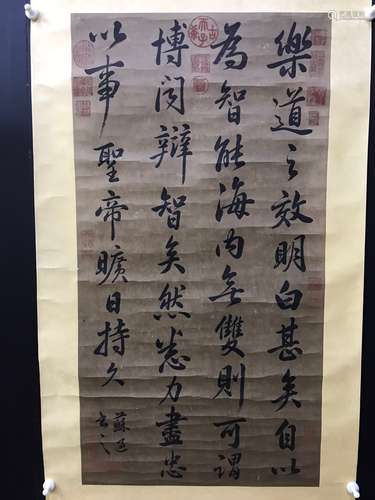 樂道之效明白甚矣自以
為智能海内無雙則可謂
博聞辯智矣然悉力盡忠
以事聖帝曠日持久
蘇
書之